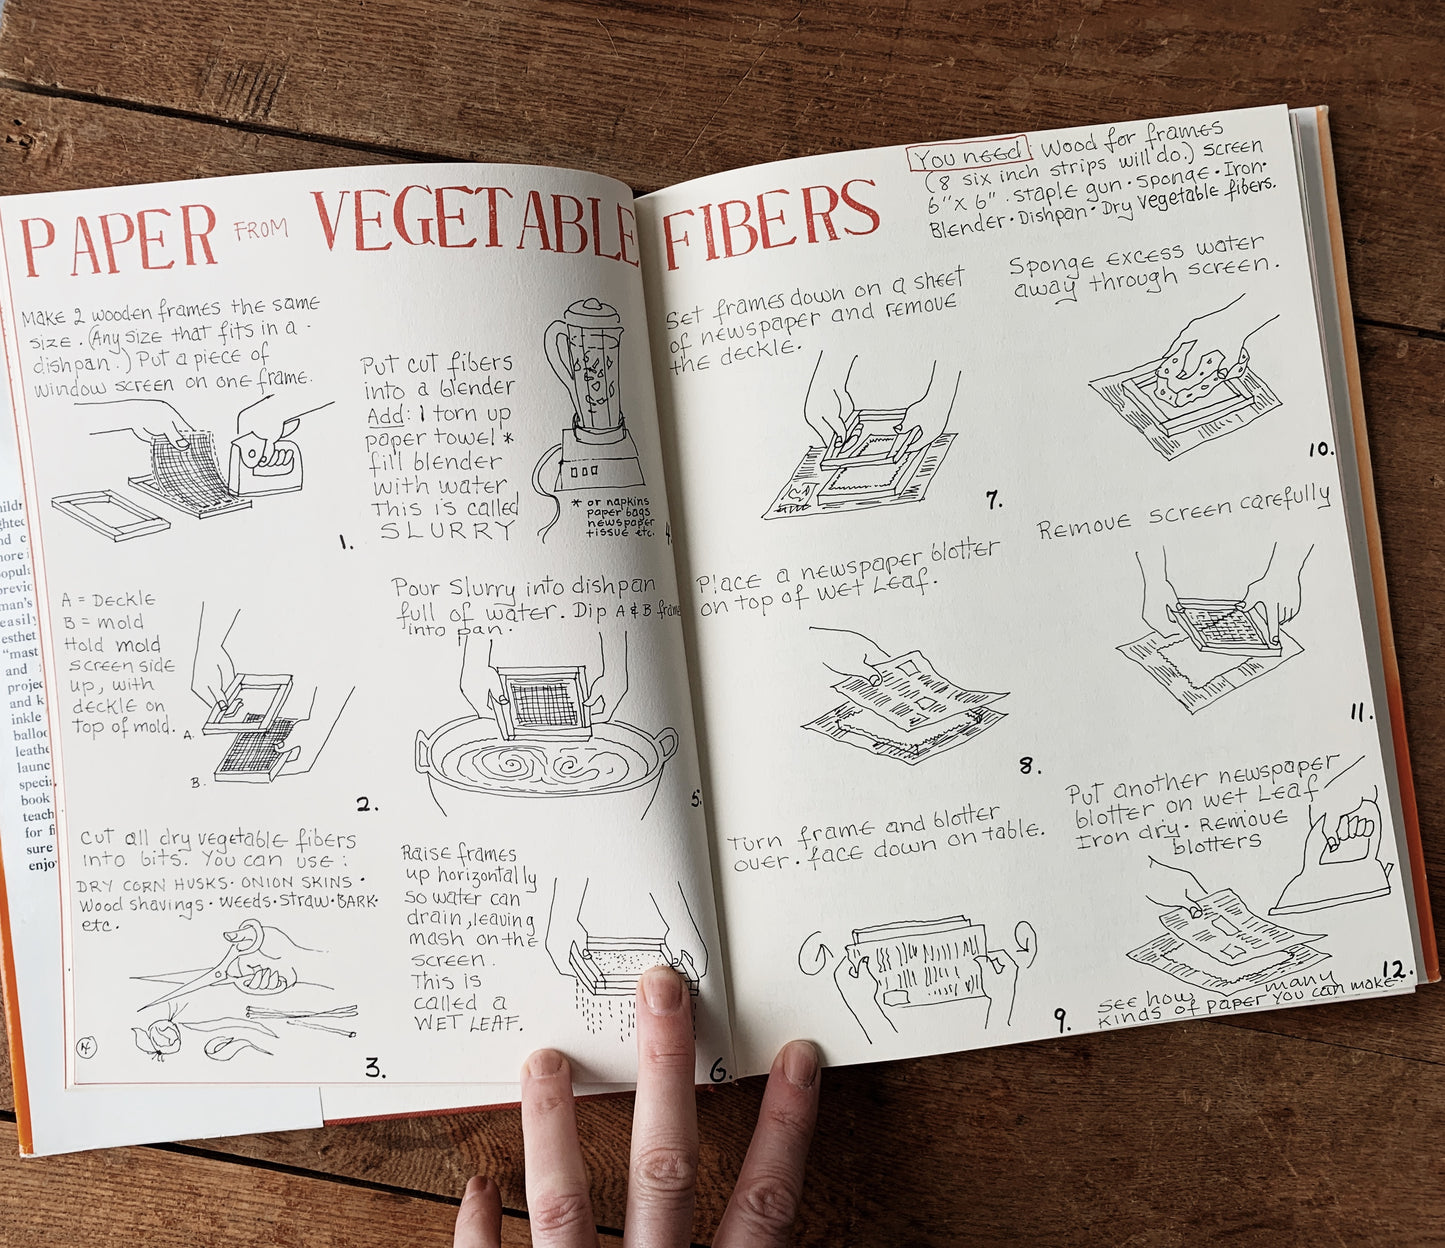 PAPER FROM VEGETABLE FIBERS
You need: Wood for frames
(8 six inch strips will do.) Screen
6"x 6" · Staple gun · Sponge · Iron·
Blender · Dishpan · Dry vegetable fibers.
Make 2 wooden frames the same
size. (Any size that fits in a
dishpan.) Put a piece of
window screen on one frame.
1.
A = Deckle
B = mold
Hold mold
screen side
up, with
deckle on
top of mold.
A.
B.
2.
Cut all dry vegetable fibers
into bits. You can use:
DRY CORN HUSKS · ONION SKINS ·
Wood shavings · weeds · straw · BARK·
etc.
3.
Put cut fibers
into a blender
Add: 1 torn up
paper towel *
fill blender
with water
This is called
SLURRY
* or napkins
paper bags
newspaper
tissue etc.
4.
Pour Slurry into dishpan
full of water. Dip A & B frame
into pan.
5.
Raise frames
up horizontally
so water can
drain, leaving
mash on the
screen.
This is
called a
WET LEAF.
6.
Set frames down on a sheet
of newspaper and remove
the deckle.
7.
Place a newspaper blotter
on top of wet Leaf.
8.
Turn frame and blotter
over. face down on table.
9.
Sponge excess water
away through screen.
10.
Remove screen carefully
11.
Put another newspaper
blotter on wet Leaf
Iron dry. Remove
blotters
12.
See how many
kinds of paper you can make.
and
"mast
projec
and k
inkle
ballo
leathe
launc
speci
book
teach
for f
sure
enjo